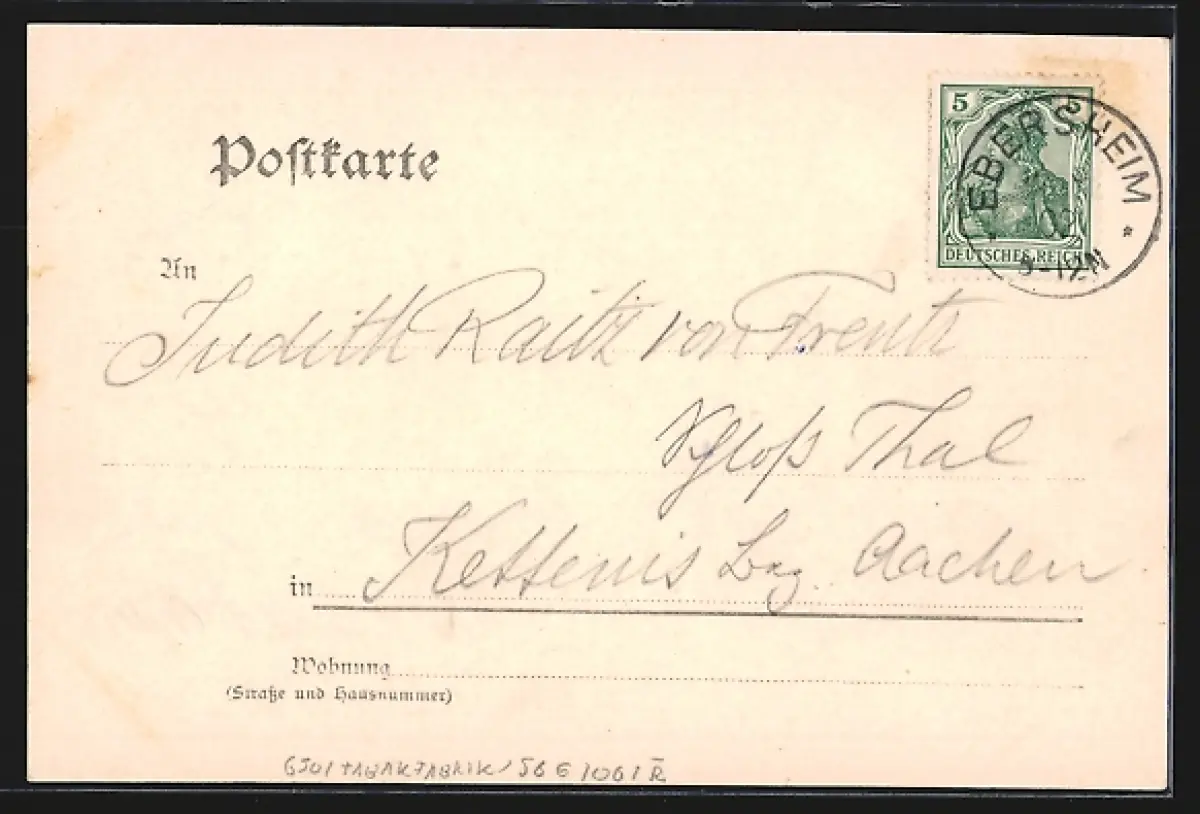 Postkarte
5
DEUTSCHES REICH
EBERSHEIM
02
5-12N
An
Judith Raitz von Frentz
Schloß Thal
in Kettenis Bez. Aachen
Wohnung
(Straße und Hausnummer)
6501 TABAKFABRIK / 56 E / 061 R